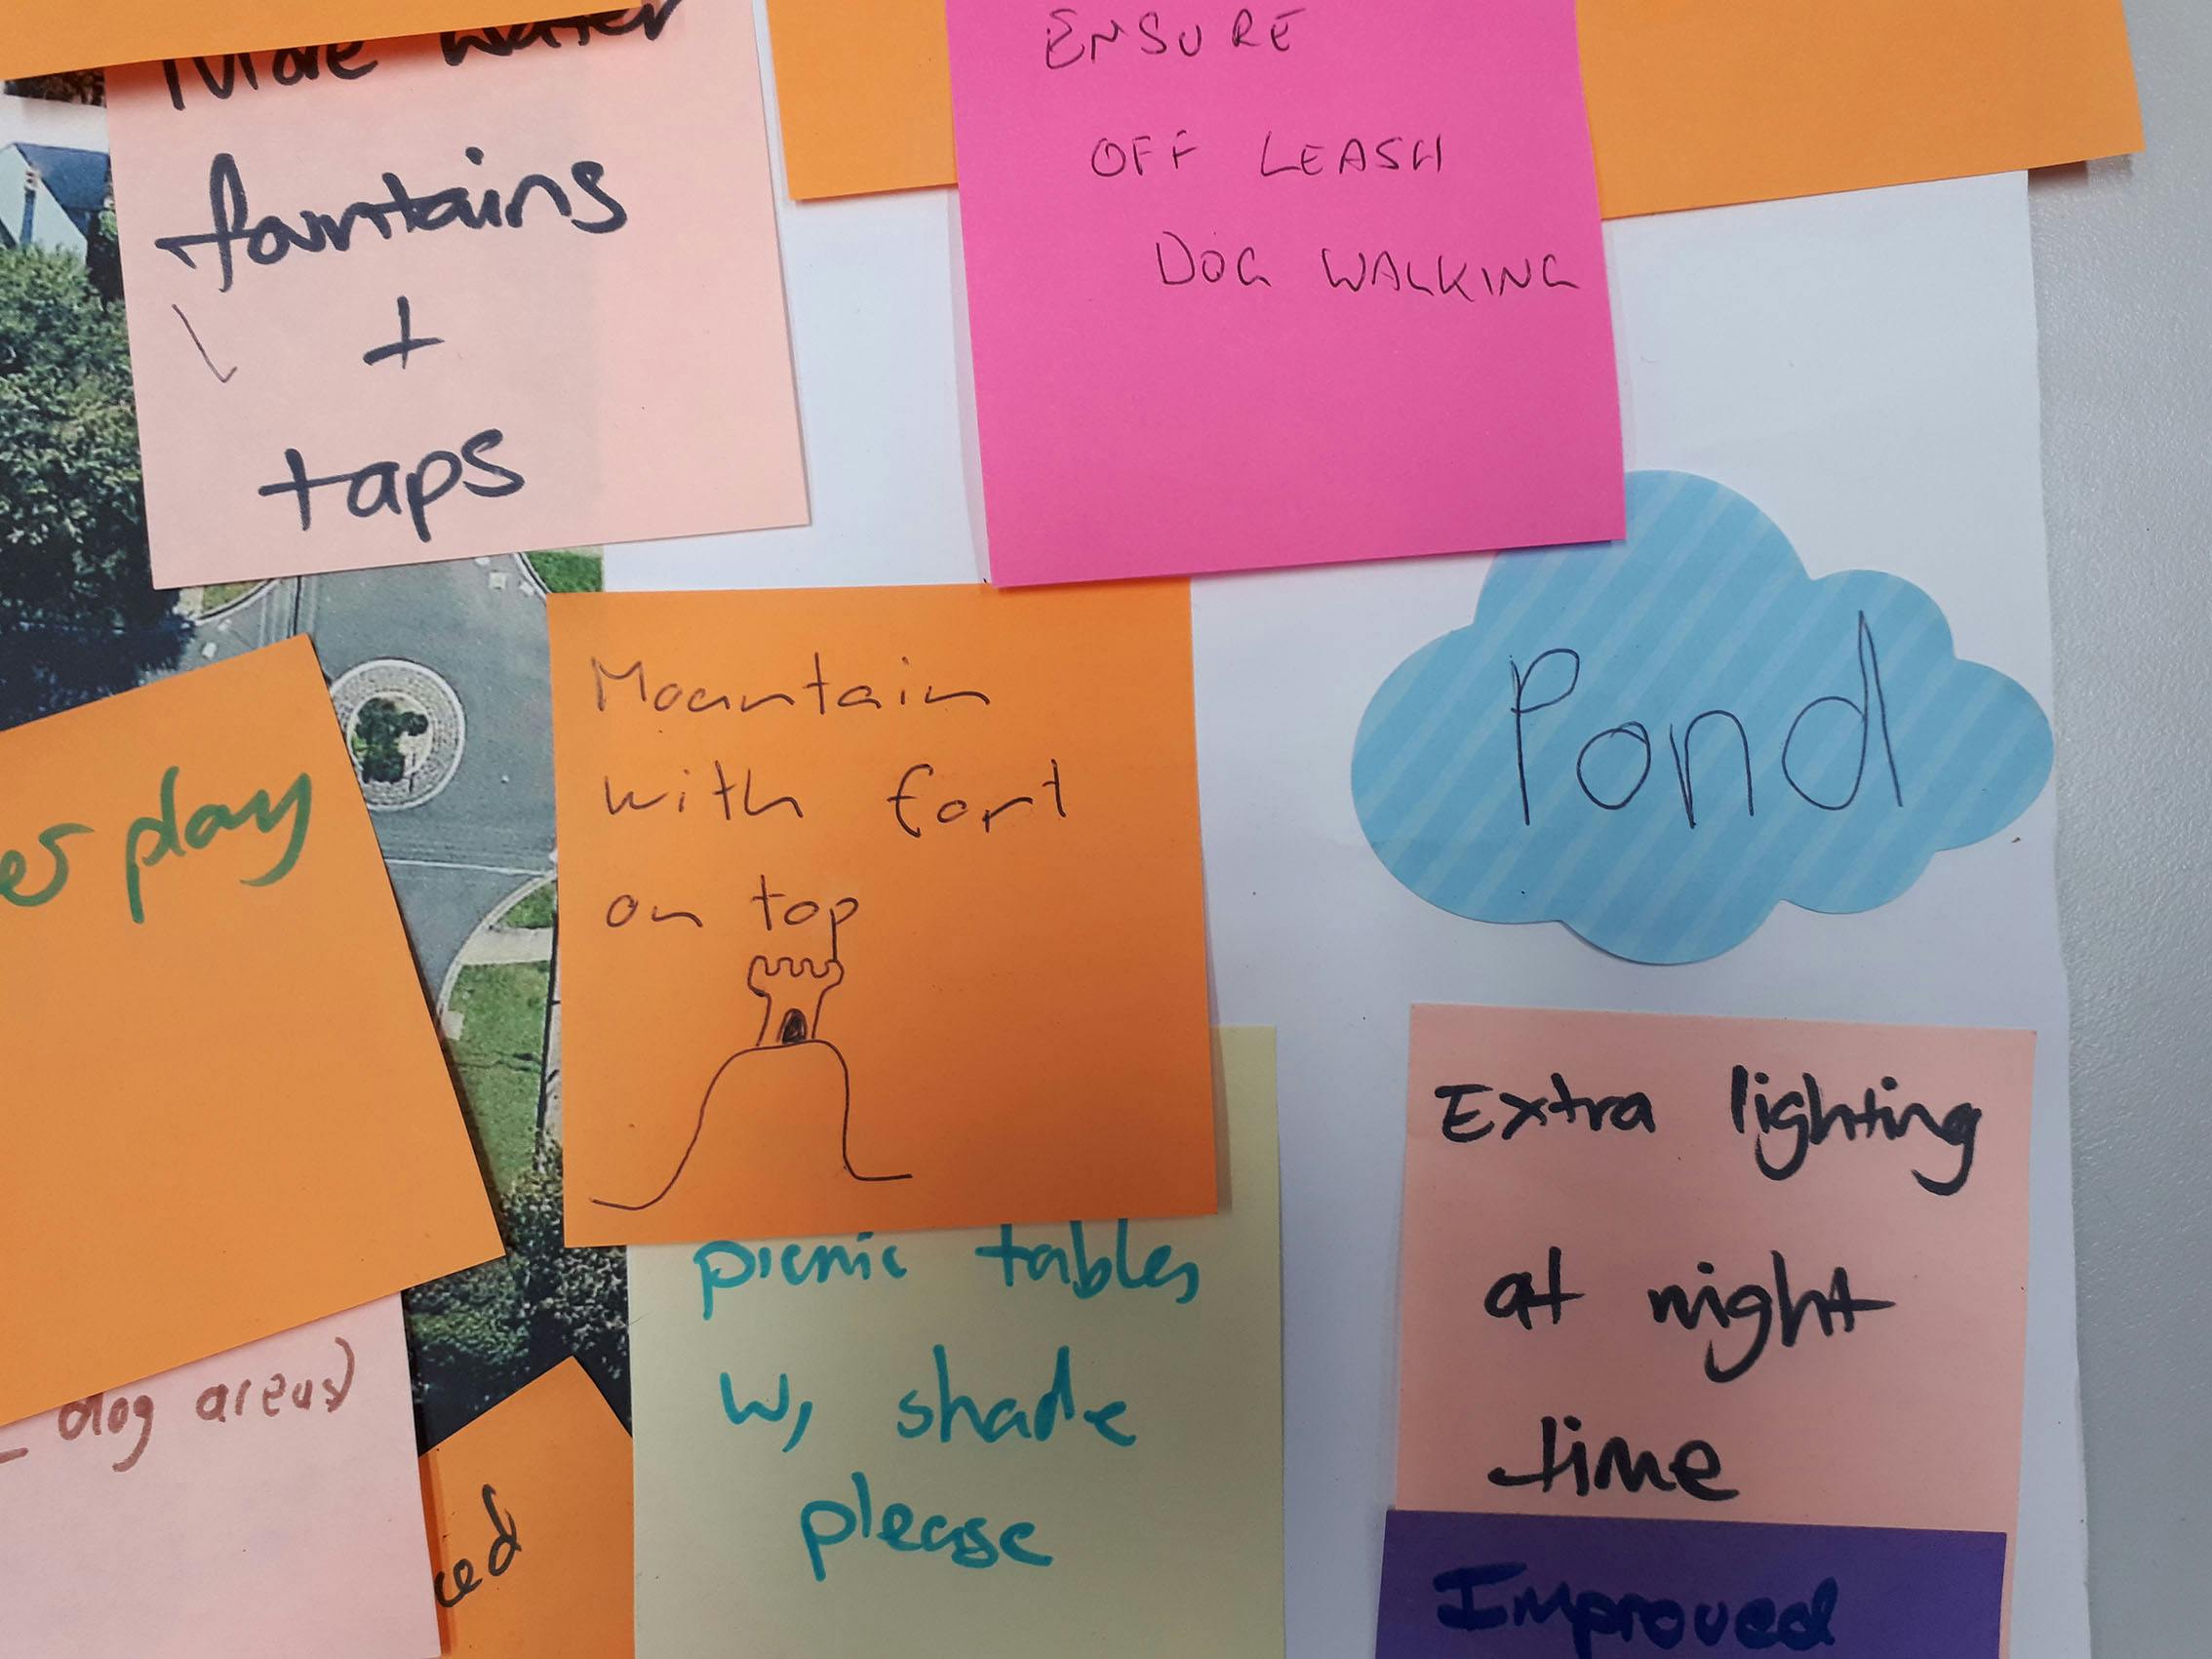 More water
fountains
+
taps
ENSURE
OFF LEASH
DOG WALKING
Mountain
with fort
on top
Pond
play
dog areas)
picnic tables
w, shade
please
Extra lighting
at night
time
Improved